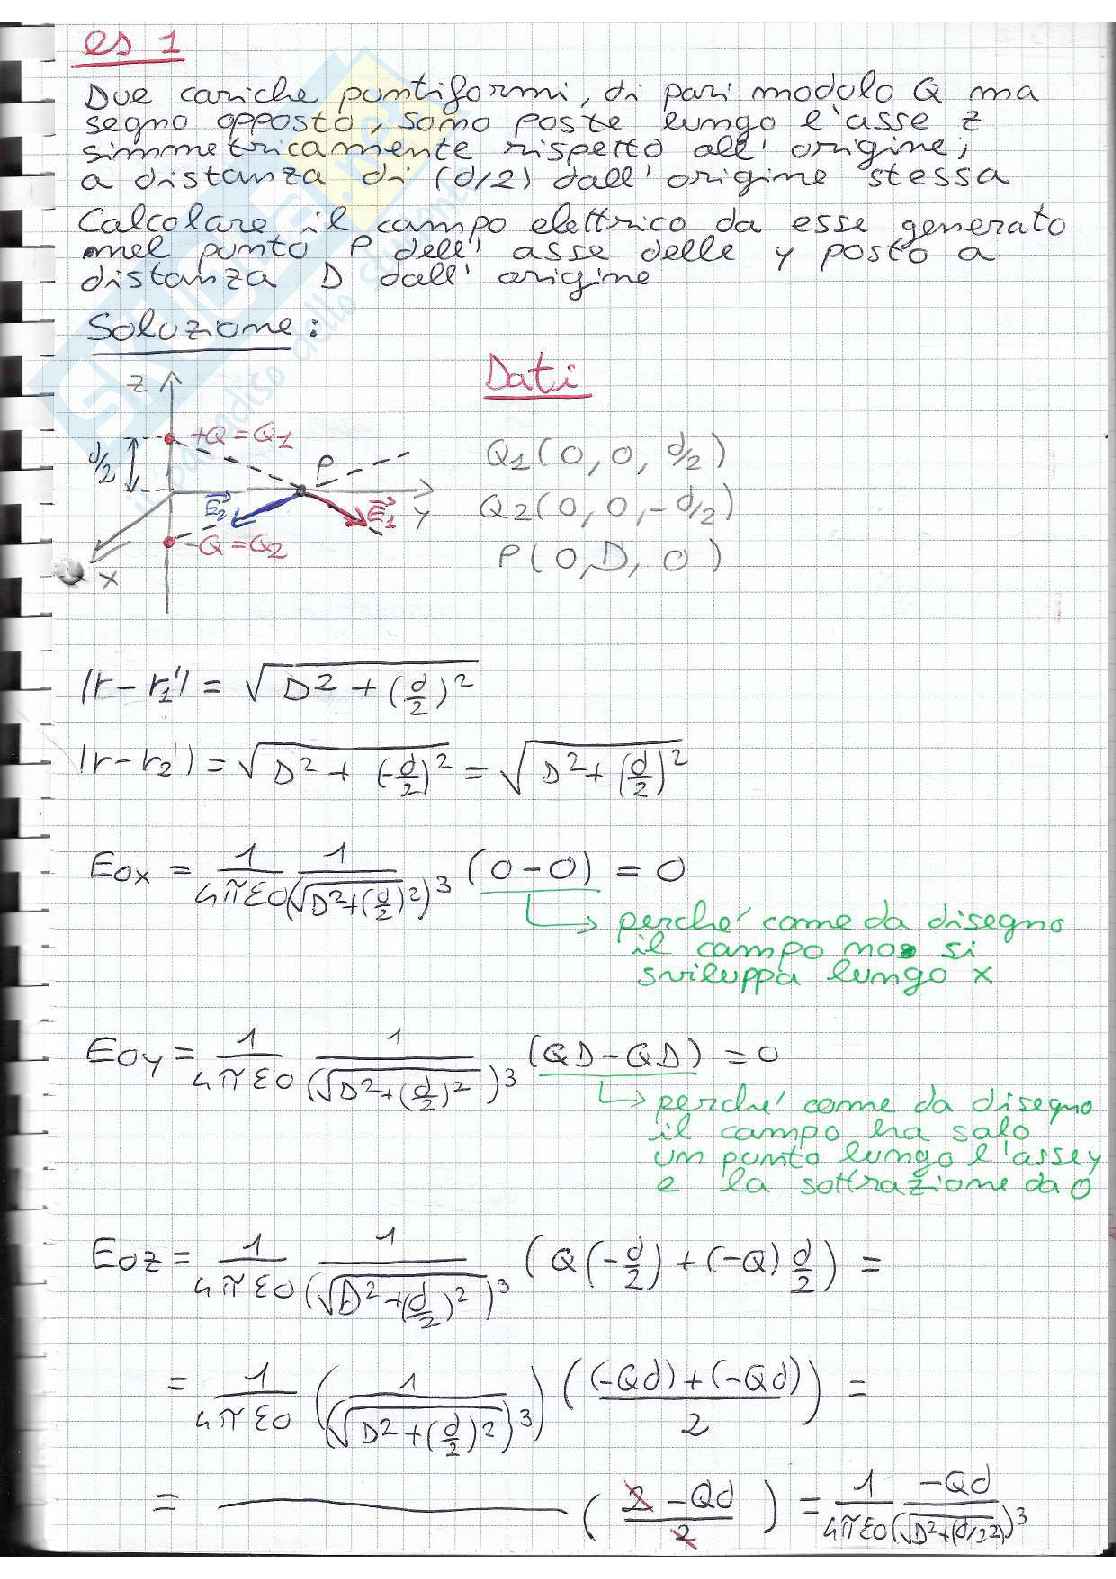 es 1
Due cariche puntiformi, di pari modulo Q ma
segno opposto, sono poste lungo l'asse z
simmetricamente rispetto all'origine;
a distanza di (d/2) dall'origine stessa
Calcolare il campo elettrico da esse generato
nel punto P dell'asse delle y posto a
distanza D dall'origine
Soluzione:
Dati
z
+Q = Q1
d/2
P
E2
E1
y
-Q = Q2
x
Q1(0,0,d/2)
Q2(0,0,-d/2)
P(0,D,0)
|r-r1'| = √(D² + (d/2)²)
|r-r2'| = √(D² + (-d/2)²) = √(D² + (d/2)²)
Eox = 1/(4πε0) 1/(√(D²+(d/2)²))³ (0-0) = 0
perché come da disegno
il campo non si
sviluppa lungo x
Eoy = 1/(4πε0) 1/(√(D²+(d/2)²))³ (QD-QD) = 0
perché come da disegno
il campo ha solo
un punto lungo l'asse y
e la sottrazione da 0
Eoz = 1/(4πε0) 1/(√(D²+(d/2)²))³ (Q(-d/2)+(-Q)d/2) =
= 1/(4πε0) (1/(√(D²+(d/2)²))³) (((-Qd)+(-Qd))/2) =
= ———— (2-Qd/2) = 1/(4πε0) -Qd/(√(D²+(d/2)²))³